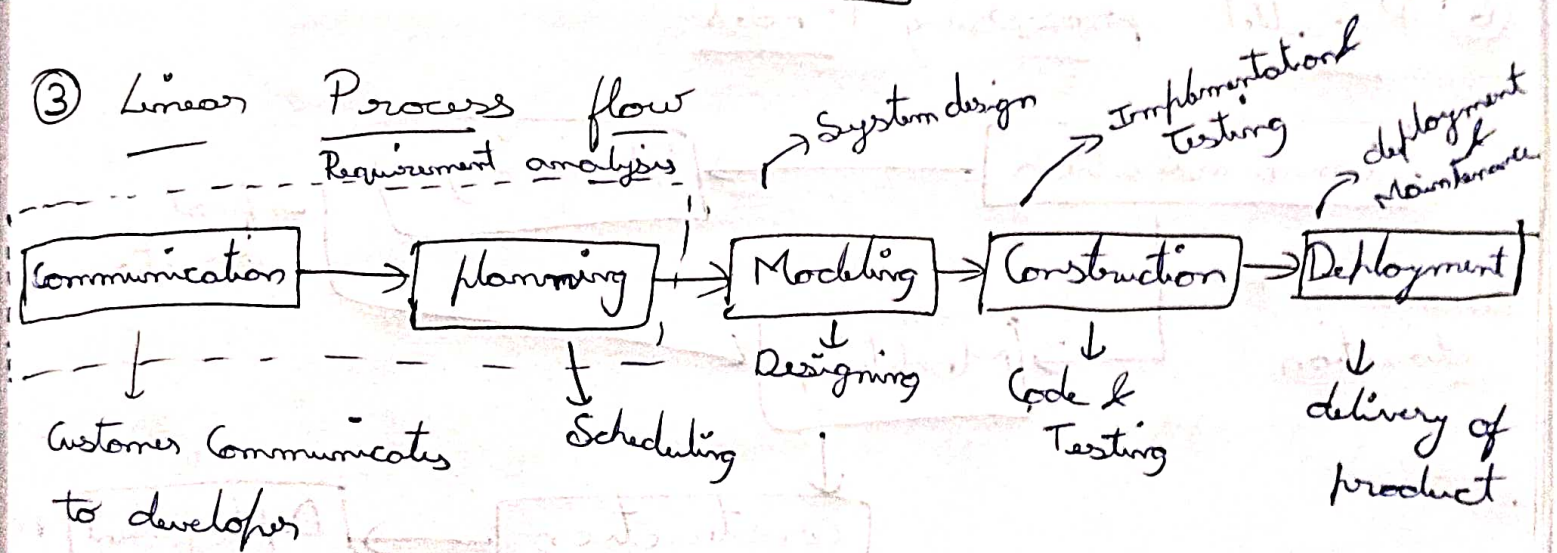 ③ Linear Process flow
Requirement analysis
System design
Implementation &
Testing
deployment
&
Maintenance
Communication
planning
Modeling
Construction
Deployment
Customer Communicates
to developer
Scheduling
Designing
Code &
Testing
delivery of
product.